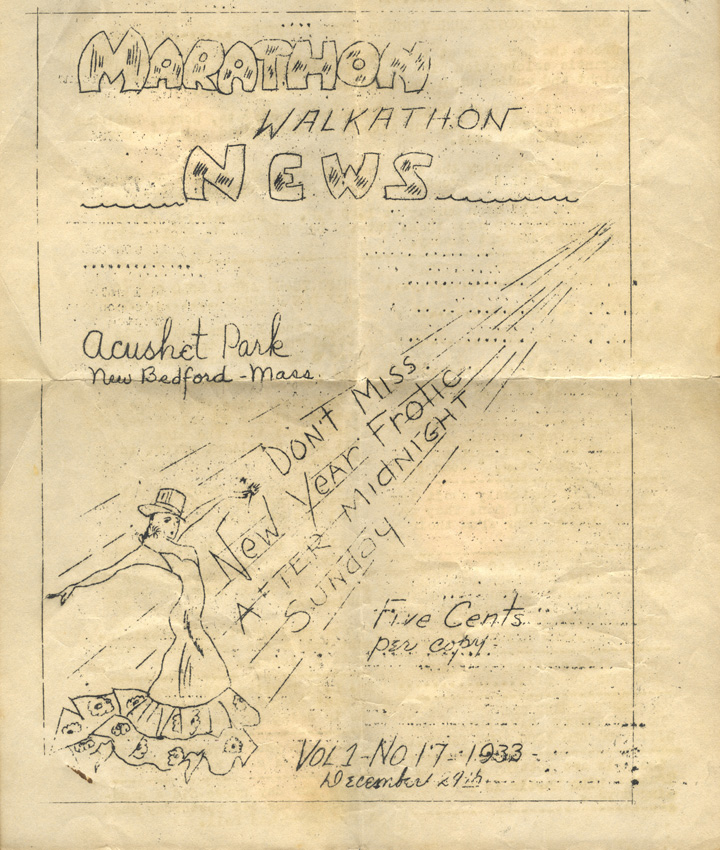 MARATHON
WALKATHON
NEWS
Acushet Park
New Bedford - Mass.
DON'T MISS
New Year Frolic
AFTER MIDNIGHT
Sunday
Five Cents
per copy
VOL 1 - NO 17 - 1933 -
December 29th